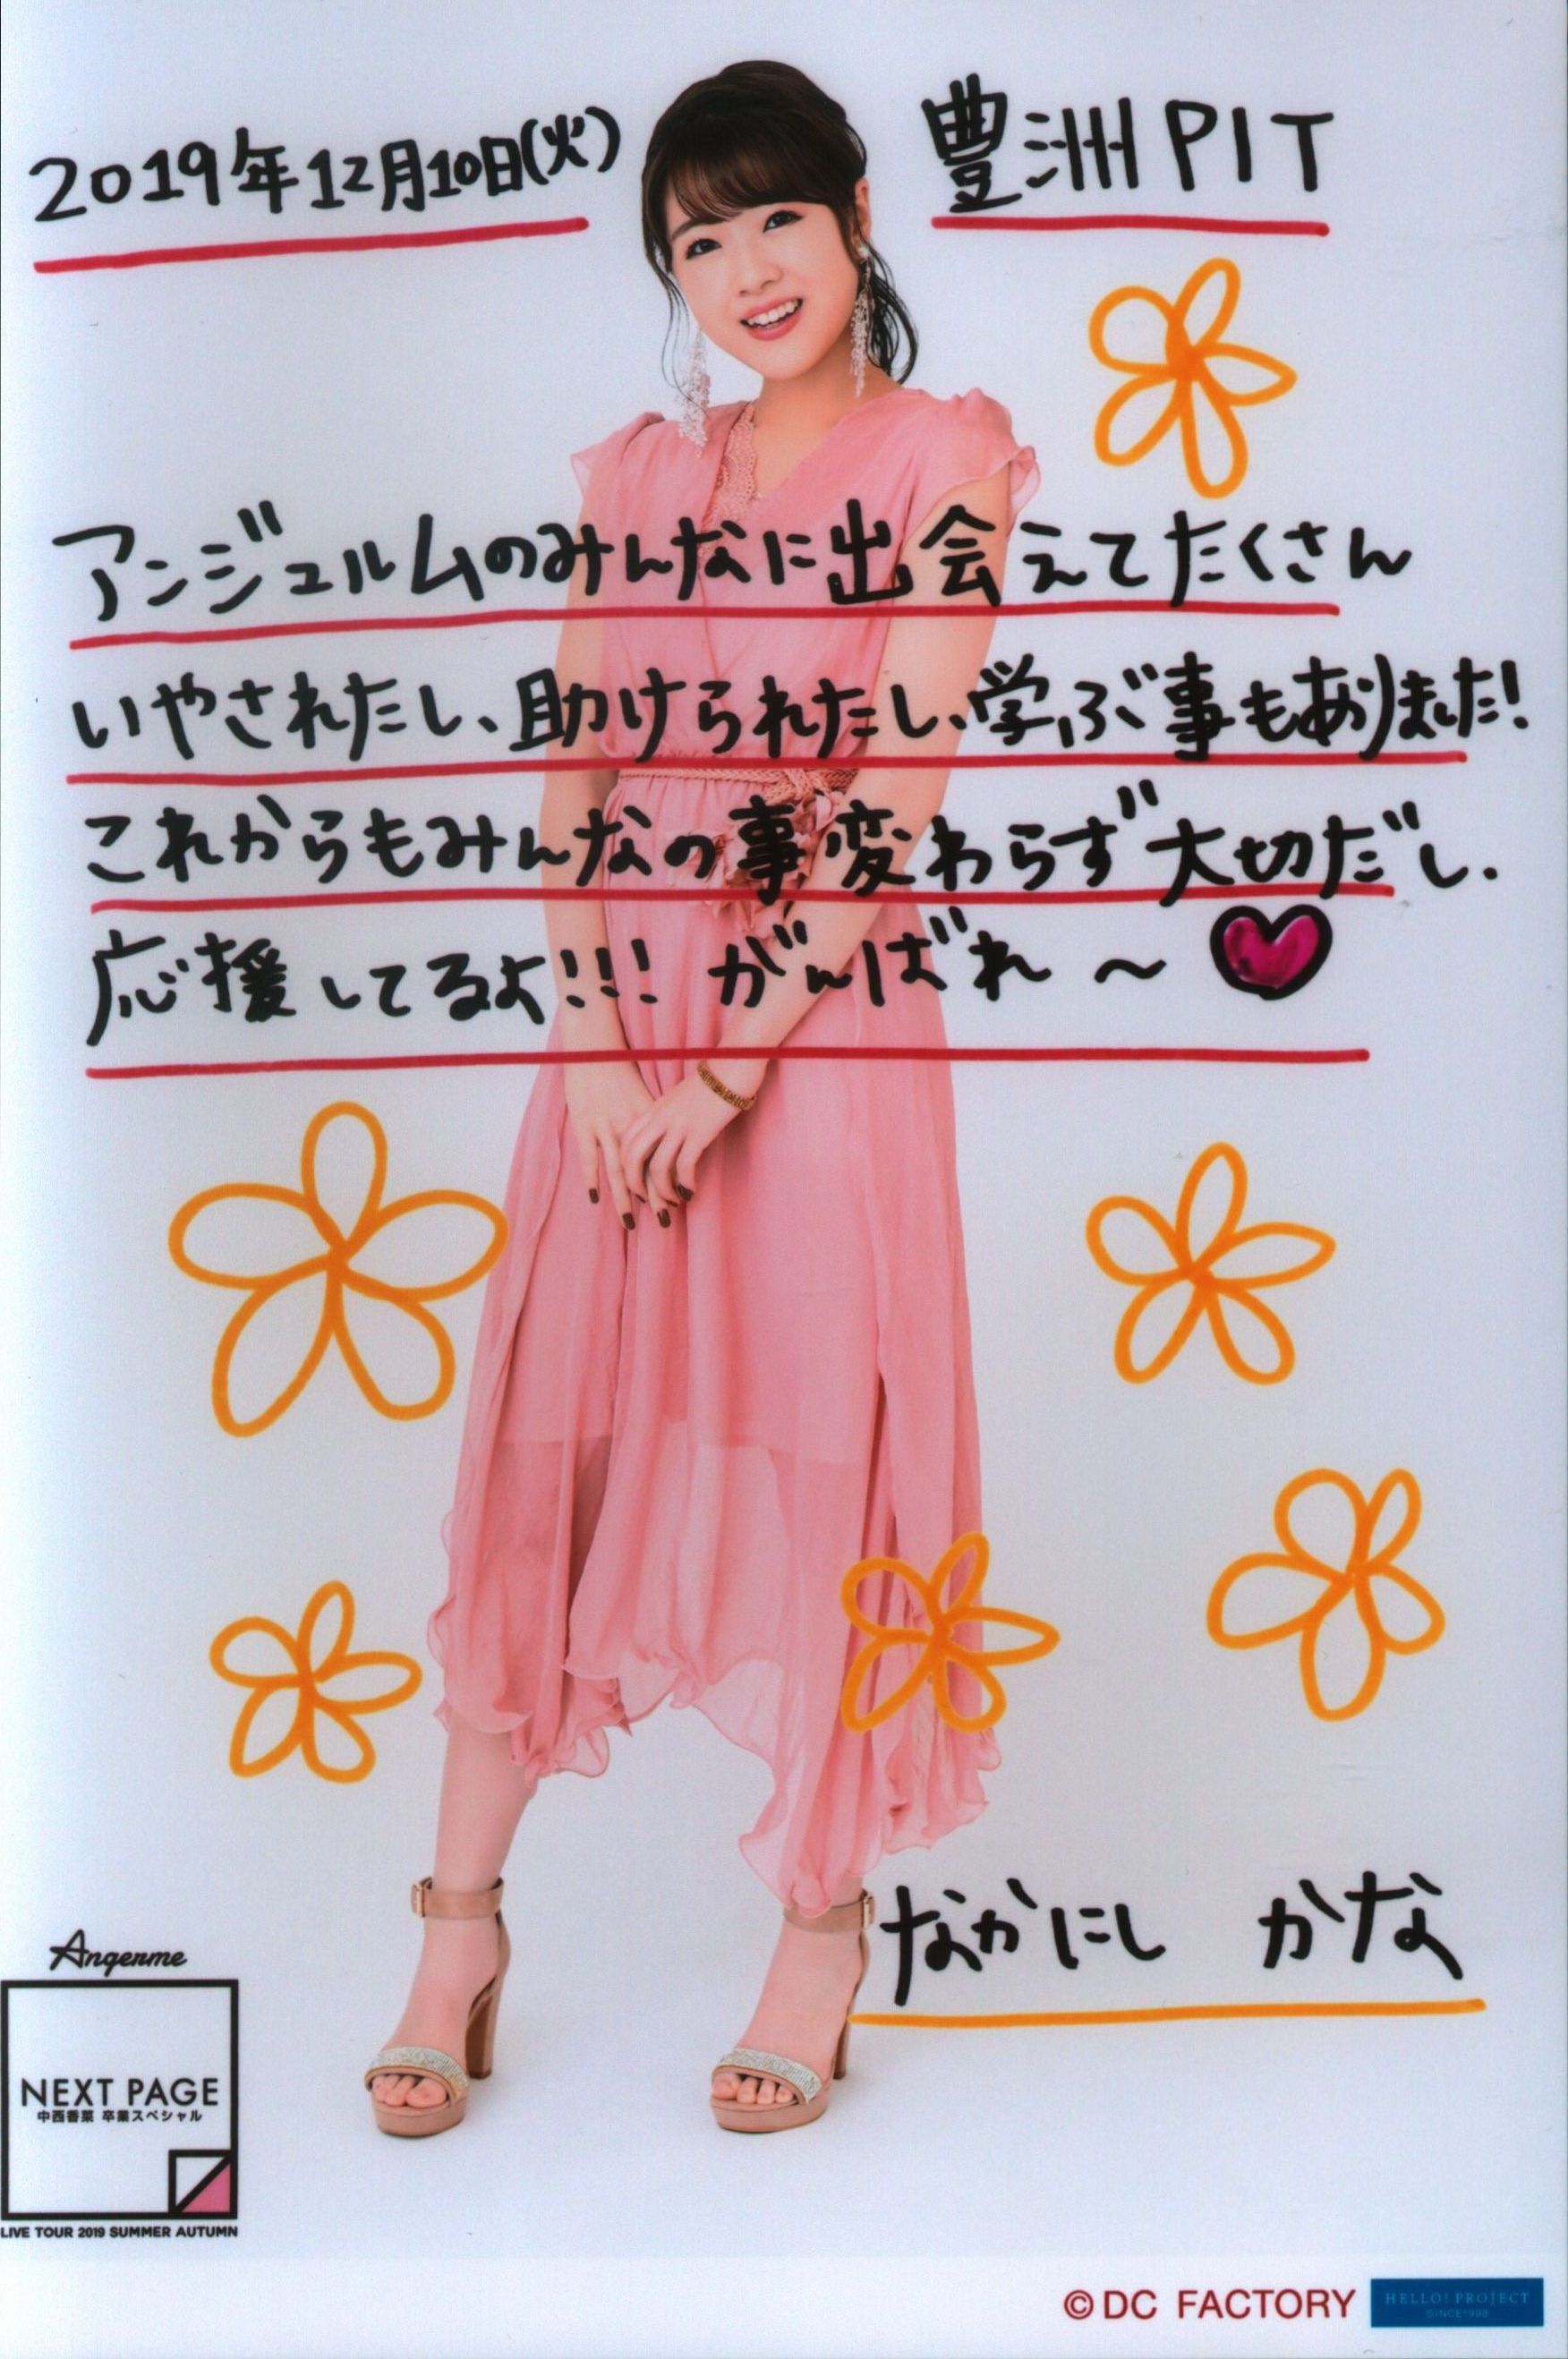 2019年12月10日(火)
豊洲PIT
アンジュルムのみんなに出会えてたくさん
いやされたし、助けられたし、学ぶ事もありました!
これからもみんなの事変わらず大切だし、
応援してるよ!!! がんばれ〜
なかにし かな
Angerme
NEXT PAGE
中西香菜 卒業スペシャル
LIVE TOUR 2019 SUMMER AUTUMN
©DC FACTORY
HELLO! PROJECT
SINCE1998